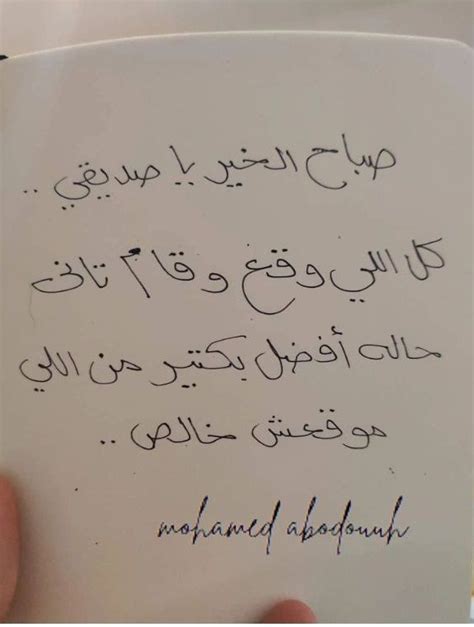 صباح الخير يا صديقي ..
كل اللي وقع وقام تانى
حاله أفضل بكتير من اللي
موقعش خالص ..
mohamed abodouuh